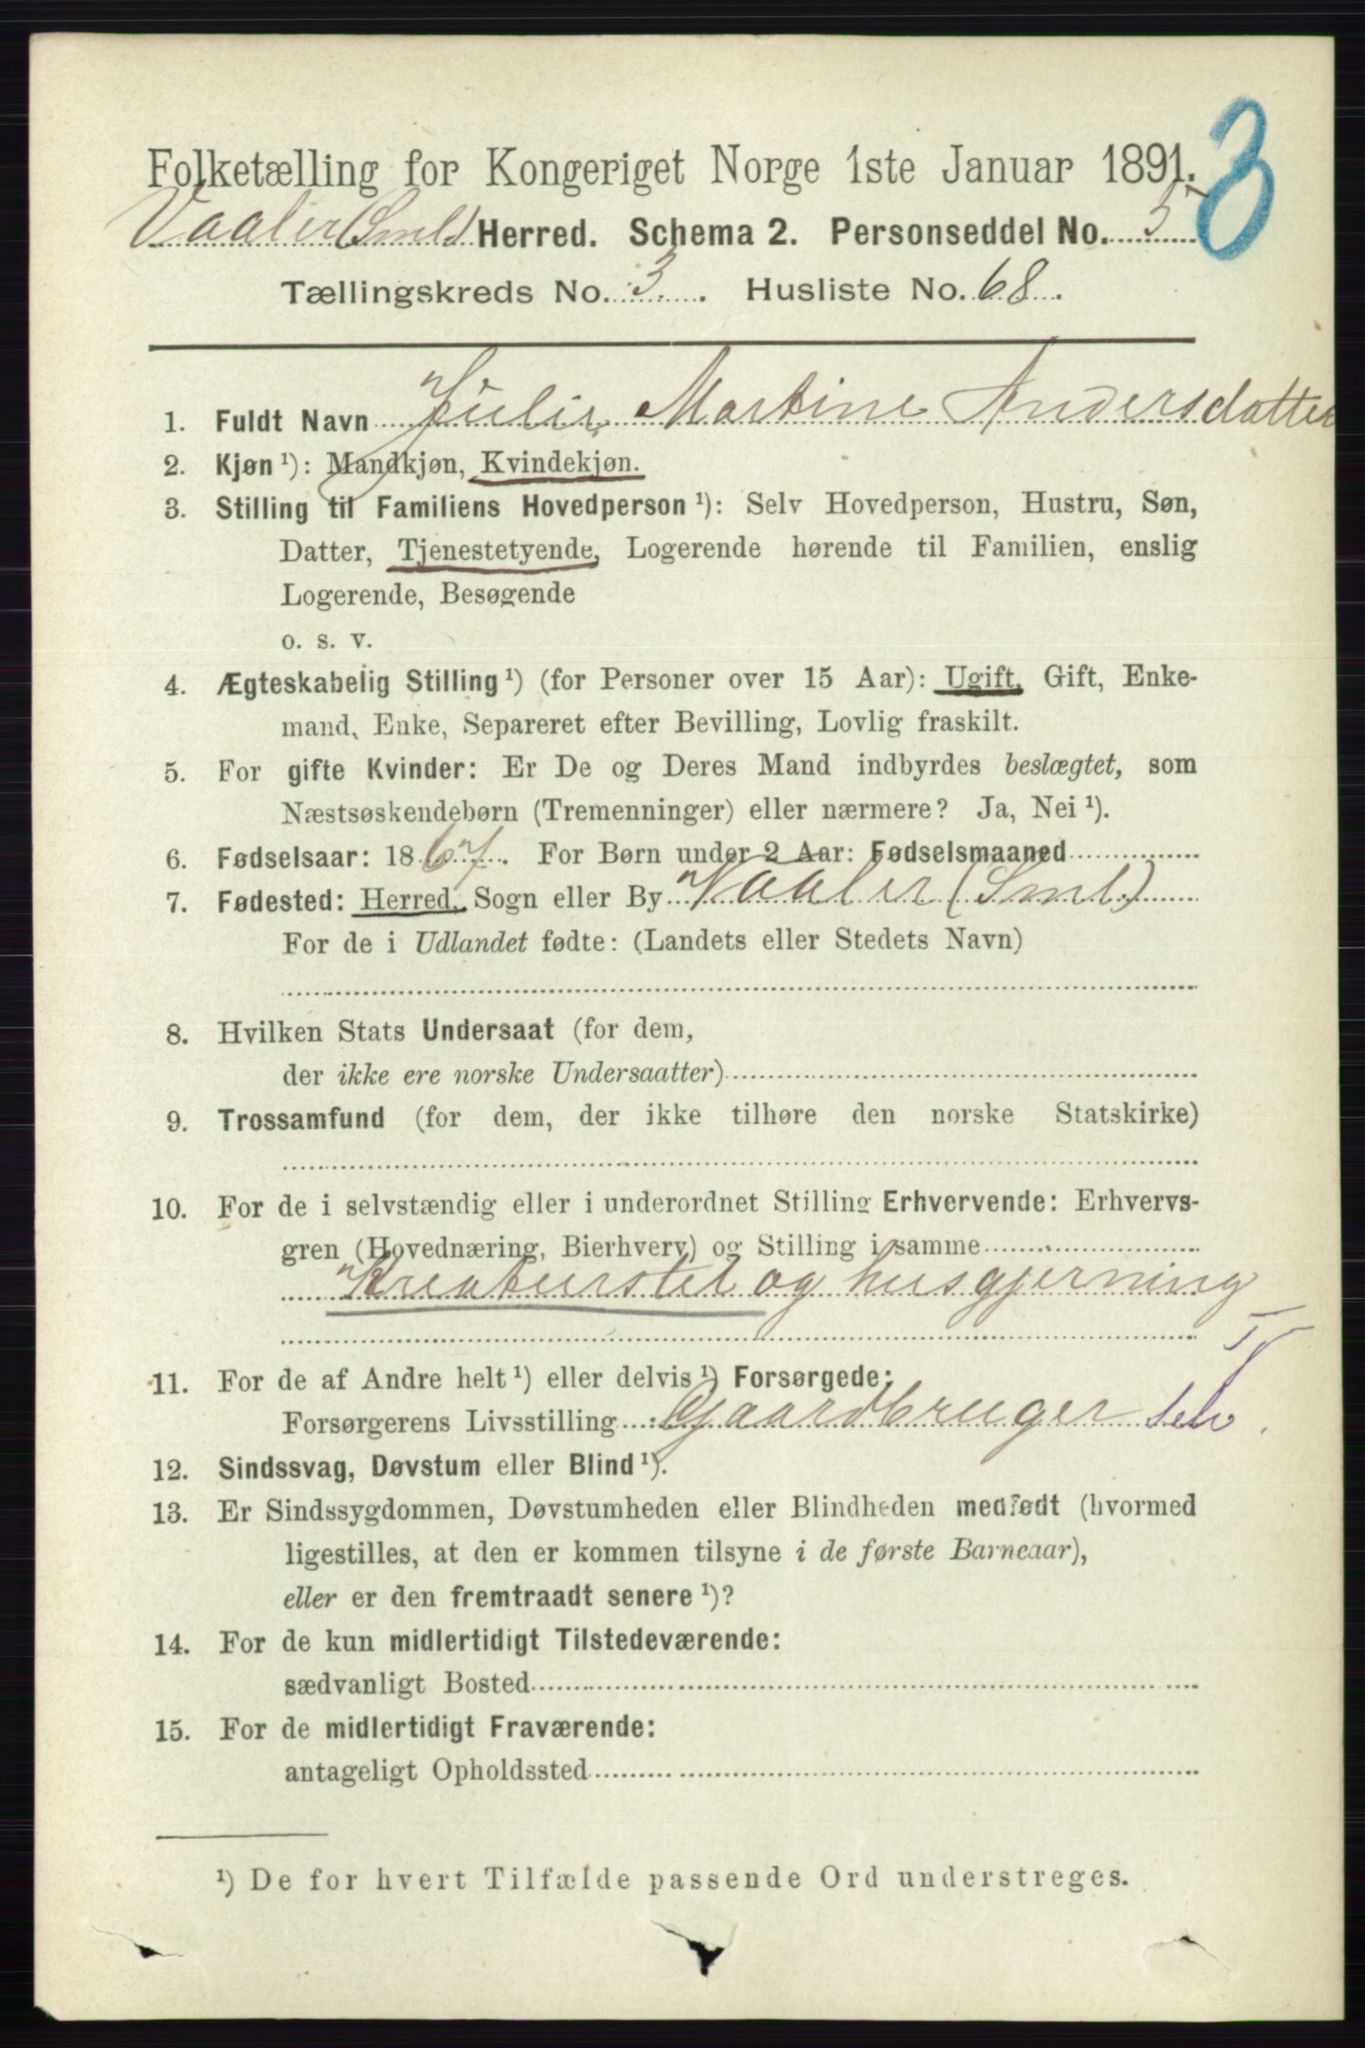 3
Folketælling for Kongeriget Norge 1ste Januar 1891.
Vaaler (Sml) Herred. Schema 2. Personseddel No. 5
Tællingskreds No. 3. Husliste No. 68.
1. Fuldt Navn Julie Martine Andersdatter
2. Kjøn ¹): Mandkjøn, Kvindekjøn.
3. Stilling til Familiens Hovedperson ¹): Selv Hovedperson, Hustru, Søn,
Datter, Tjenestetyende, Logerende hørende til Familien, enslig
Logerende, Besøgende
o. s. v.
4. Ægteskabelig Stilling ¹) (for Personer over 15 Aar): Ugift, Gift, Enke-
mand, Enke, Separeret efter Bevilling, Lovlig fraskilt.
5. For gifte Kvinder: Er De og Deres Mand indbyrdes beslægtet, som
Næstsøskendebørn (Tremenninger) eller nærmere? Ja, Nei ¹).
6. Fødselsaar: 1867. For Børn under 2 Aar: Fødselsmaaned
7. Fødested: Herred, Sogn eller By Vaaler (Sml.)
For de i Udlandet fødte: (Landets eller Stedets Navn)
8. Hvilken Stats Undersaat (for dem,
der ikke ere norske Undersaatter)
9. Trossamfund (for dem, der ikke tilhøre den norske Statskirke)
10. For de i selvstændig eller i underordnet Stilling Erhvervende: Erhvervs-
gren (Hovednæring, Bierhverv) og Stilling i samme
Kreaturstel og husgjerning
11. For de af Andre helt ¹) eller delvis ¹) Forsørgede:
Forsørgerens Livsstilling Gaardbruger selv
12. Sindssvag, Døvstum eller Blind ¹).
13. Er Sindssygdommen, Døvstumheden eller Blindheden medfødt (hvormed
ligestilles, at den er kommen tilsyne i de første Barneaar),
eller er den fremtraadt senere ¹)?
14. For de kun midlertidigt Tilstedeværende:
sædvanligt Bosted
15. For de midlertidigt Fraværende:
antageligt Opholdssted
¹) De for hvert Tilfælde passende Ord understreges.